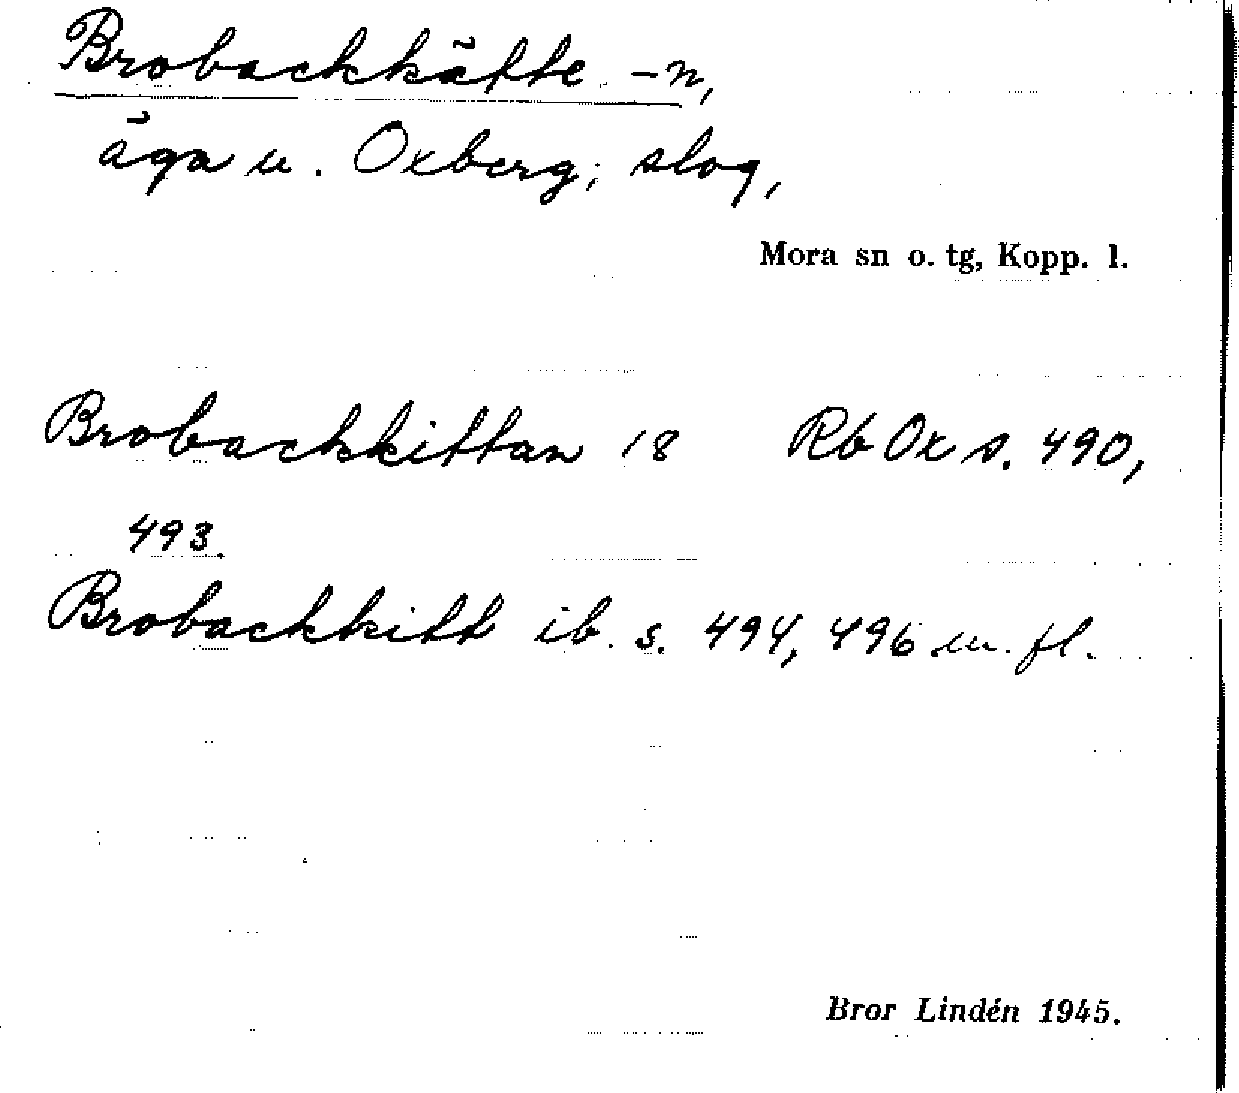 Brobackkätte -n,
äga u. Oxberg; slog,
Mora sn o. tg, Kopp. l.
Brobackkittan 18 Rb Ox s. 490,
493.
Brobackkitt ib. s. 494, 496 m. fl.
Bror Lindén 1945.